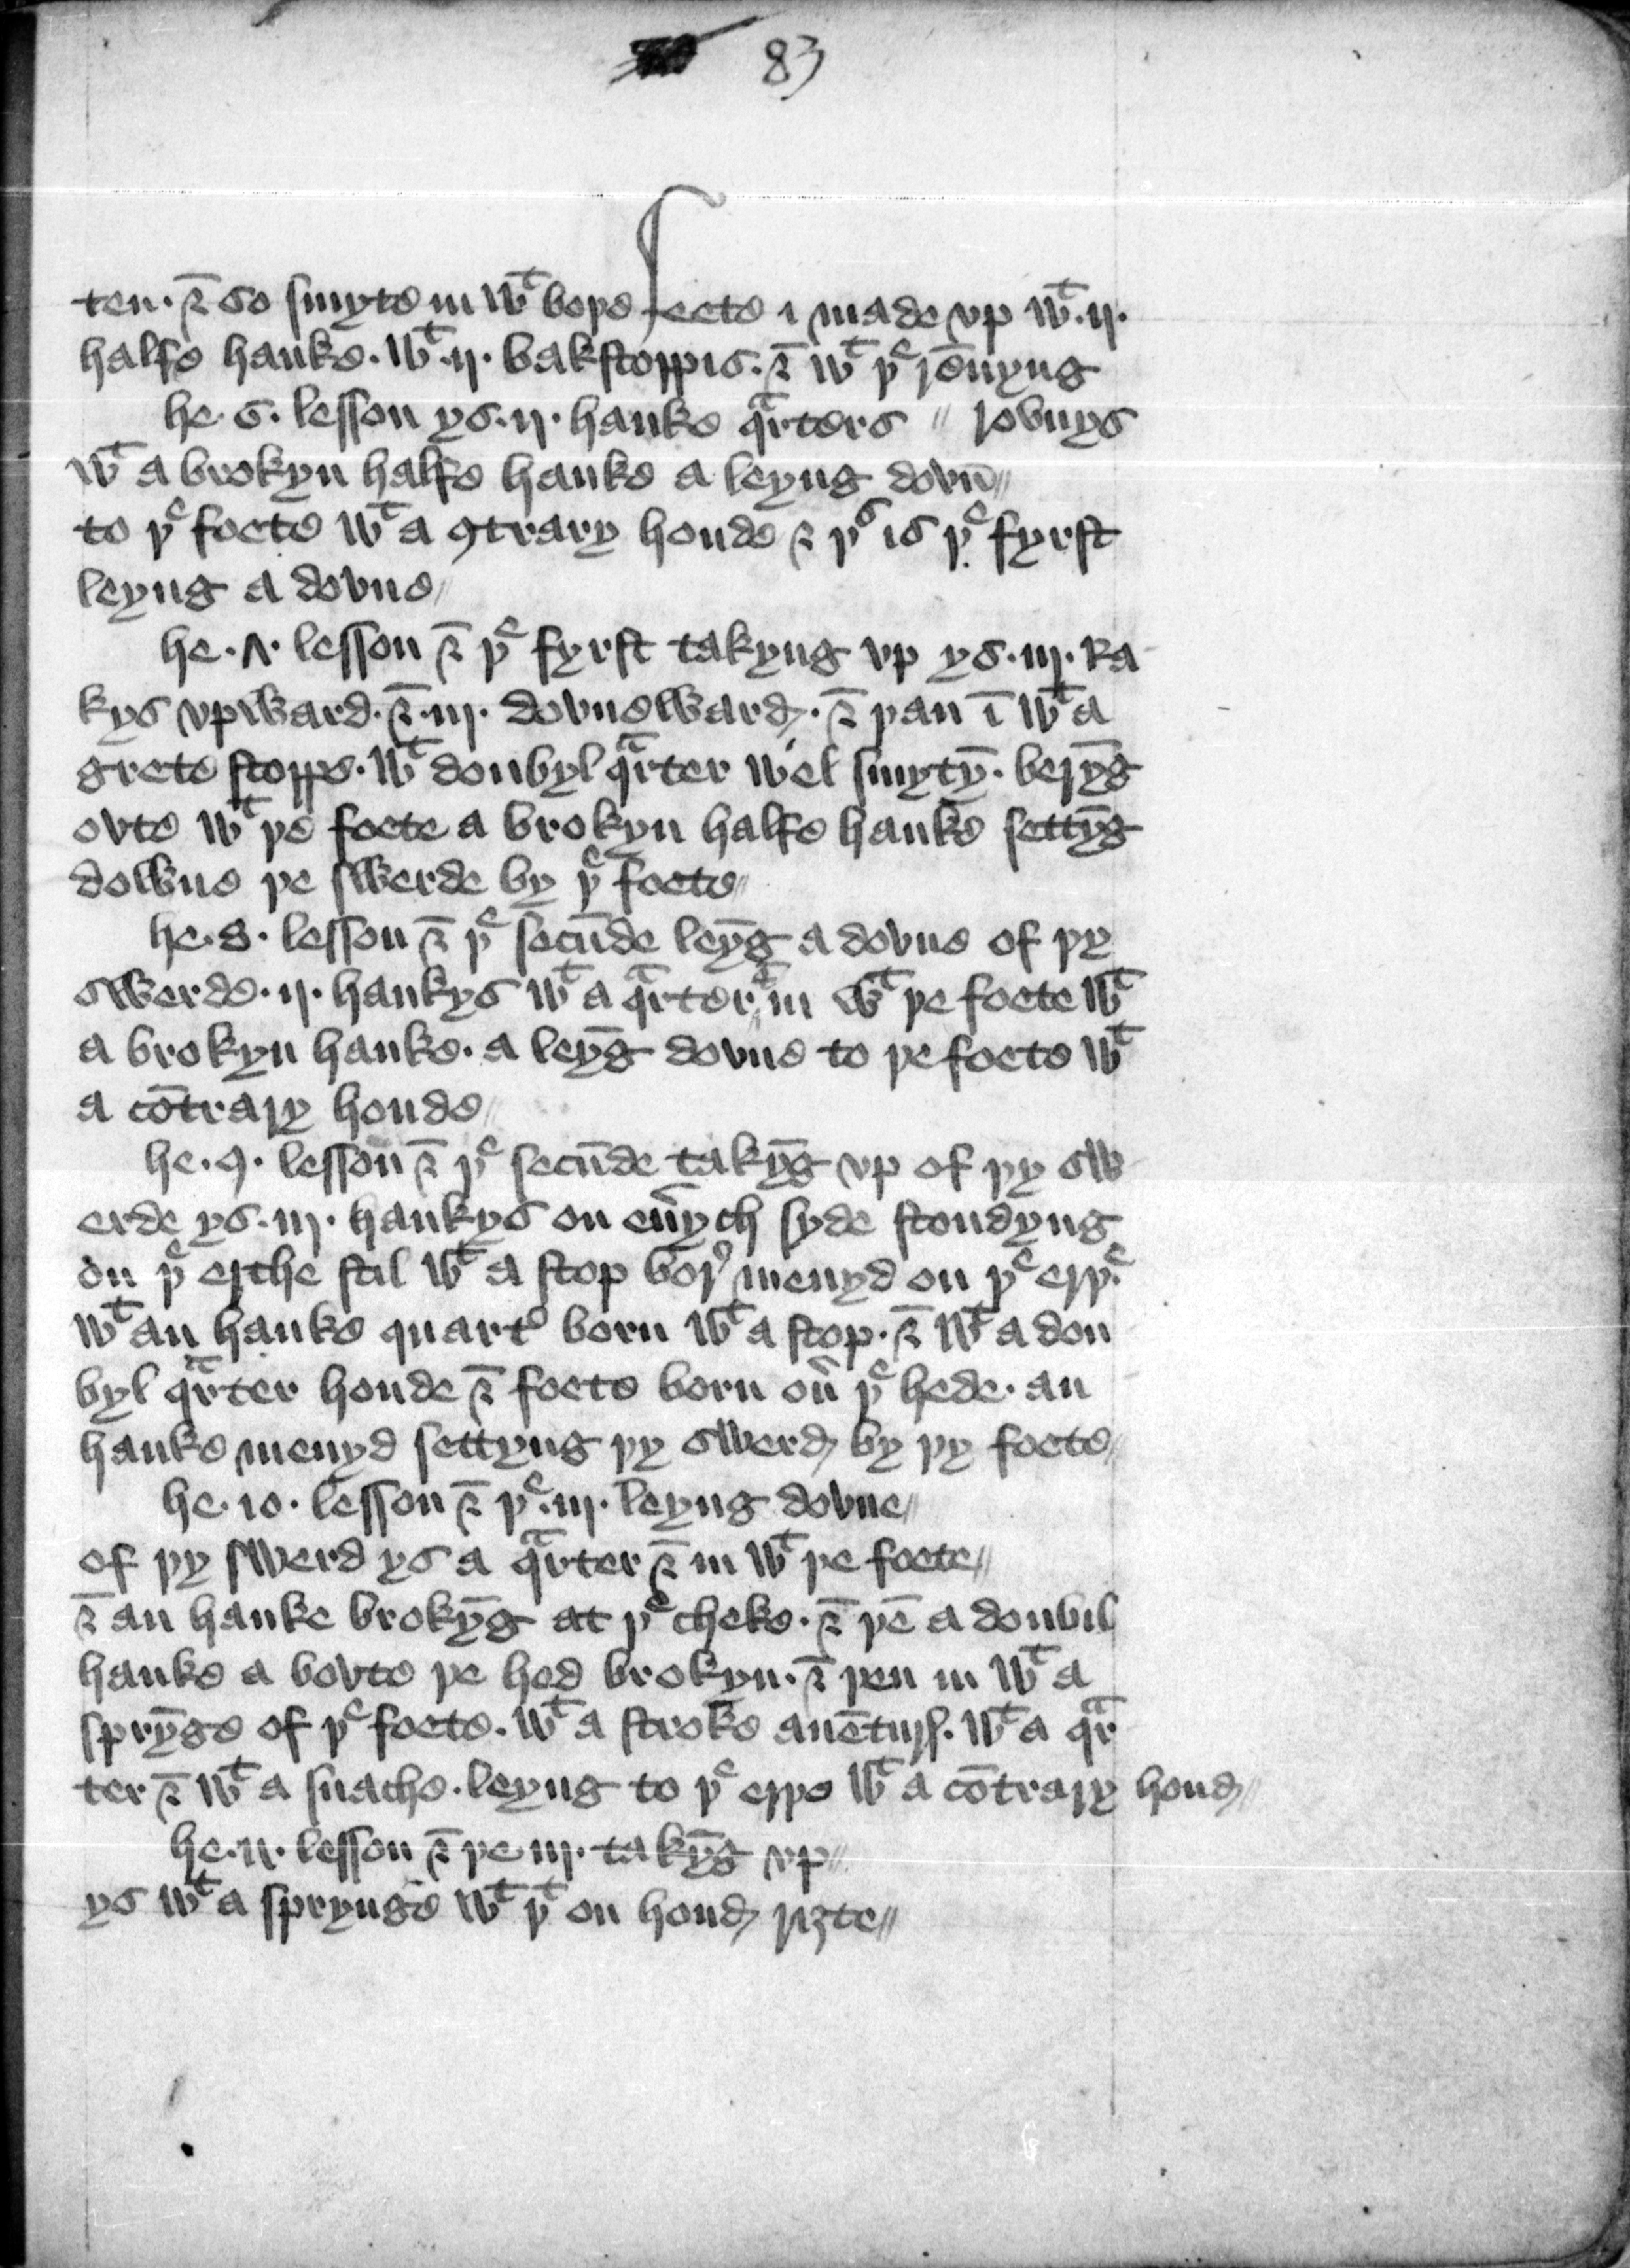 83
ten · & so smyte in wͭ boþe feete i made vp wͭ · ij ·
halfe hauke · wͭ · ij · bakstoppis · & wͭ þᵉ rēnyng
he · 6 · lesson ys · ij · hauke qᵃrters // rovnys
wͭ a brokyn halfe hauke a leyng dovn̄ //
to þᵉ foete wͭ a ꝯtrary honde & þˢ is þᵉ fyrst
leyng a dovne //
he · ʌ · lesson & þᵉ fyrst takyng vp ys · iij · Ra
kys vpward · & · iij · dovneward · & þan ī wͭ a
grete stoppe · wͭ doubyl qᵃrter wel smytȳ · berȳg
ovte wͭ þe foete a brokyn halfe hauke settȳg
downe þe swerde by þᵉ foete //
he · 8 · lesson & þᵉ secūde leyḡ a dovne of þy
swerde · ij · haukys wͭ a qᵃrter in wͭ þe foete wͭ
a brokyn hauke · a leyḡ dovne to þe foete wͭ
a cōtrary honde //
he · 9 · lesson & þᵉ secūde takȳg vp of þy sw
erde ys · iij · haukys on eūych syde stondyng
on þᵉ erthe stil wͭ a stop bor̄ menyd on þᵉ erþᵉ
wͭ an hauke quart̉ born wͭ a stop · & wͭ a dou
byl qᵃrter honde & foete born oū þᵉ hede · an
hauke menyd settyng þy swerd by þy foete //
he · 10 · lesson & þᵉ · iij · leyng dovne //
of þy swerd ys a qᵃrter & in wͭ þe foete //
& an hauke brokȳg at þᵉ cheke · & þē a doubil
hauke a bovte þe hed brokyn · & þen in wͭ a
sprȳge of þᵉ foete · wͭ a stroke auēturs · wͭ a qᵃr
ter & wͭ a snache · leyng to þᵉ erþe wͭ a cōtrary hond //
he · 11 · lesson & þe iij · takȳg vp //
ys wͭ a sprynge wͭ þͭ on hond riȝte //